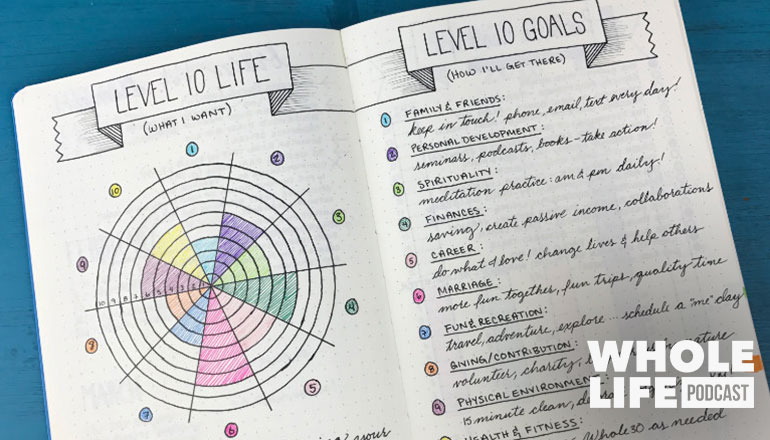 LEVEL 10 LIFE
(WHAT I WANT)
1
2
3
4
5
6
7
8
9
10
10 9 8 7 6 5 4 3 2 1
LEVEL 10 GOALS
(HOW I'LL GET THERE)
1 FAMILY & FRIENDS:
keep in touch! phone, email, text every day!
2 PERSONAL DEVELOPMENT:
seminars, podcasts, books - take action!
3 SPIRITUALITY:
meditation practice: am & pm daily!
4 FINANCES:
saving, create passive income, collaborations
5 CAREER:
do what I love! change lives & help others
6 MARRIAGE:
more fun together, fun trips, quality time
7 FUN & RECREATION:
travel, adventure, explore... schedule a "me" day
8 GIVING/CONTRIBUTION:
volunteer, charity, nature
9 PHYSICAL ENVIRONMENT:
15 minute clean,
HEALTH & FITNESS:
Whole30 as needed
WHOLE
LIFE PODCAST